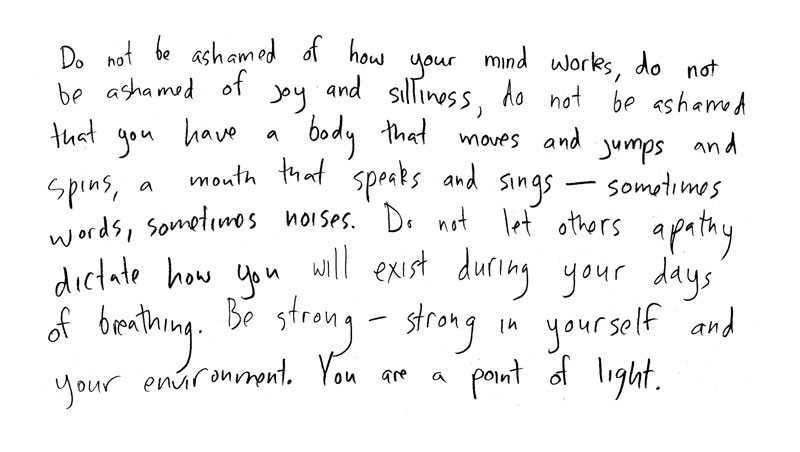 Do not be ashamed of how your mind works, do not
be ashamed of joy and silliness, do not be ashamed
that you have a body that moves and jumps and
spins, a mouth that speaks and sings — sometimes
words, sometimes noises. Do not let others apathy
dictate how you will exist during your days
of breathing. Be strong — strong in yourself and
your environment. You are a point of light.